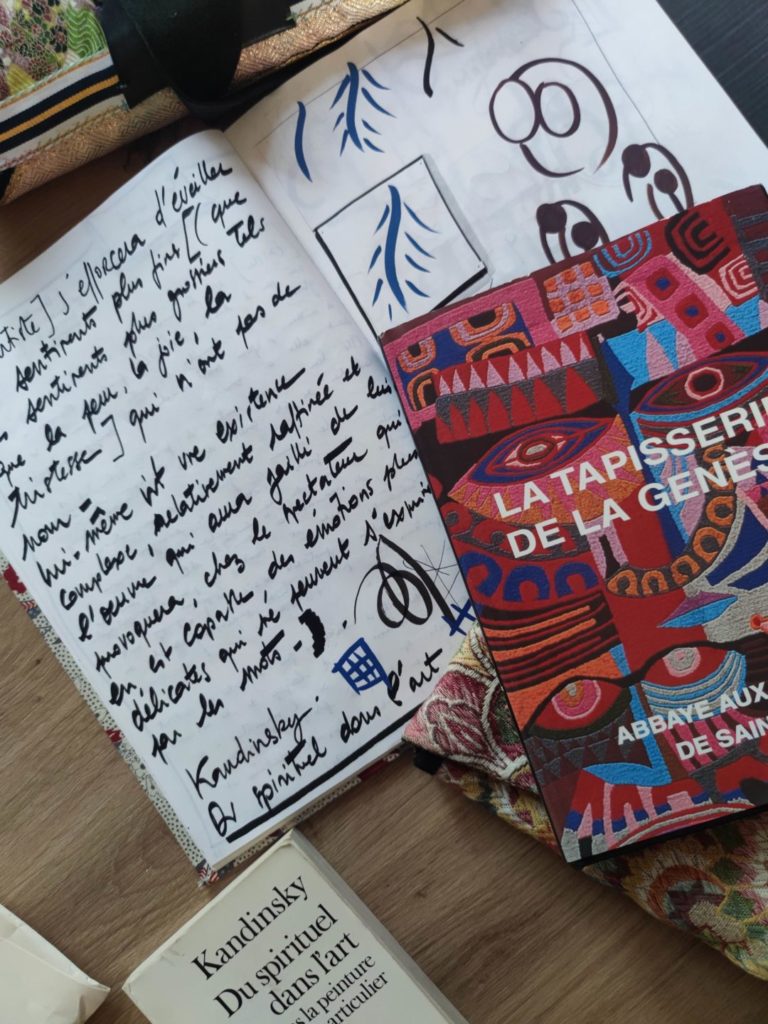 artiste] s'efforcera d'éveiller
sentiments plus fins [(que
sentiments plus grossiers tels
que la peur, la joie, la
tristesse] qui n'ont pas de
nom -
lui-même vit une existence
complexe, relativement raffinée et
l'œuvre qui aura jailli de lui
provoquera, chez le spectateur qui
en est capable, des émotions plus
délicates qui ne peuvent s'exprimer
par les mots -).
Kandinsky.
Du spirituel dans l'art
LA TAPISSERIE
DE LA GENÈS
ABBAYE AUX
DE SAIN
Kandinsky
Du spirituel
dans l'art
la peinture
articulier